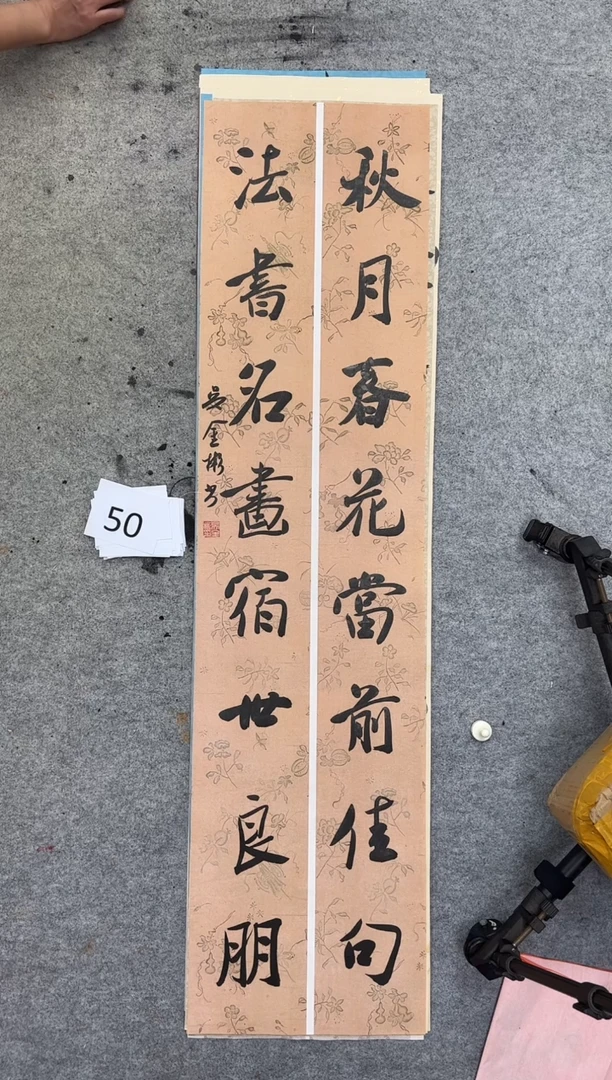 秋月春花當前佳句
法書名畫宿世良朋
吴金彬书
50